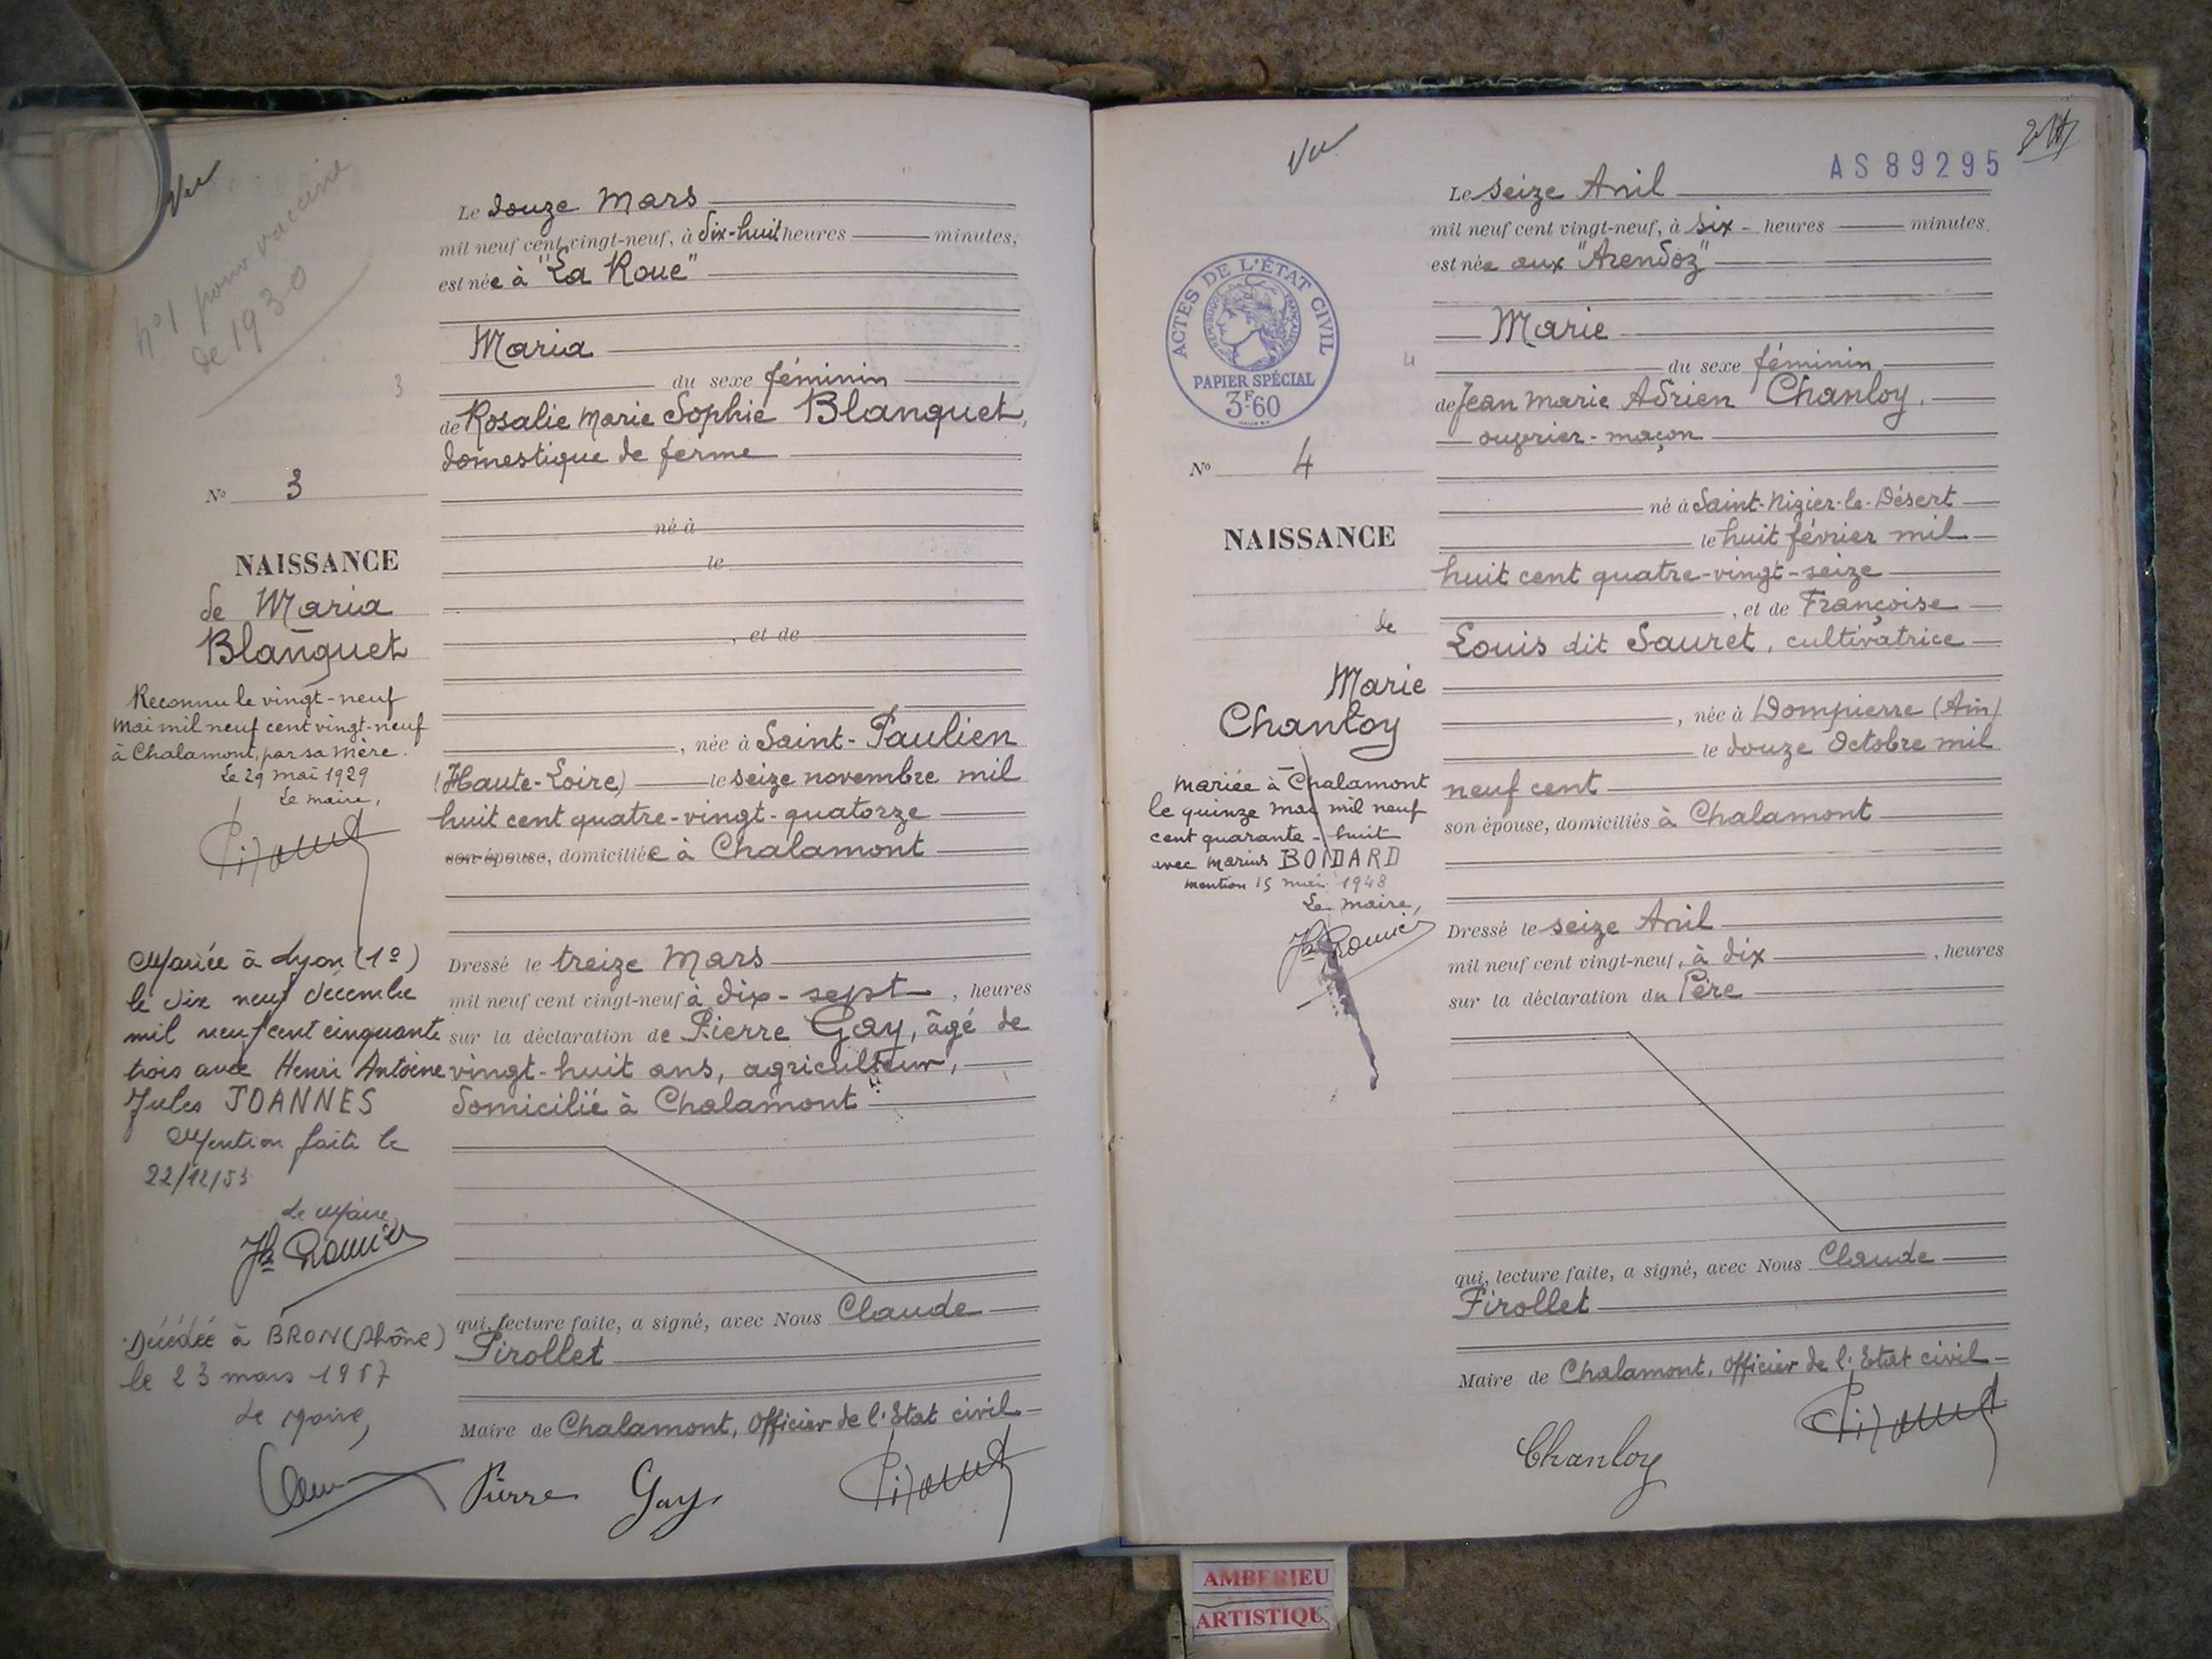 Vu
n° 1 pour vaccine
de 1930
3
N° 3
NAISSANCE
de Maria
Blanquet
Reconnu le vingt-neuf
mai mil neuf cent vingt-neuf
à Chalamont, par sa mère.
Le 29 mai 1929
Le maire,
Mariée à Lyon (1º)
le dix neuf décembre
mil neuf cent cinquante
trois avec Henri Antoine
Jules JOANNES
Mention faite le
22/12/53
Le Maire
Décédée à BRON (Rhône)
le 23 mars 1987
Le Maire,
Le douze Mars
mil neuf cent vingt-neuf, à dix-huit heures minutes,
est née à "La Roue"
Maria
du sexe féminin
de Rosalie Marie Sophie Blanquet,
domestique de ferme
né à
le
, et de
, née à Saint-Paulien
(Haute-Loire) le seize novembre mil
huit cent quatre-vingt-quatorze
son épouse, domiciliée à Chalamont
Dressé le treize Mars
mil neuf cent vingt-neuf à dix-sept , heures
sur la déclaration de Pierre Gay, âgé de
vingt-huit ans, agriculteur,
domicilié à Chalamont
qui, lecture faite, a signé, avec Nous Claude
Pirollet
Maire de Chalamont, Officier de l'Etat civil
Pierre Gay
Vu
AS 89295
ACTES DE L'ÉTAT CIVIL
RÉPUBLIQUE FRANÇAISE
PAPIER SPÉCIAL
3F.60
4
N° 4
NAISSANCE
de
Marie
Chanloy
mariée à Chalamont
le quinze mai mil neuf
cent quarante-huit
avec Marius BONDARD
mention 15 mai 1948
Le maire,
Le seize Avril
mil neuf cent vingt-neuf, à six - heures minutes.
est née aux "Arendoz"
Marie
du sexe féminin
de Jean Marie Adrien Chanloy,
ouvrier-maçon
né à Saint-Nizier-le-Désert
le huit février mil
huit cent quatre-vingt-seize
, et de Françoise
Louis dit Sauret, cultivatrice
, née à Dompierre (Ain)
le douze Octobre mil
neuf cent
son épouse, domiciliés à Chalamont
Dressé le seize Avril
mil neuf cent vingt-neuf, à dix , heures
sur la déclaration du Père
qui, lecture faite, a signé, avec Nous Claude
Pirollet
Maire de Chalamont, Officier de l'Etat civil
Chanloy
AMBERIEU
ARTISTIQU